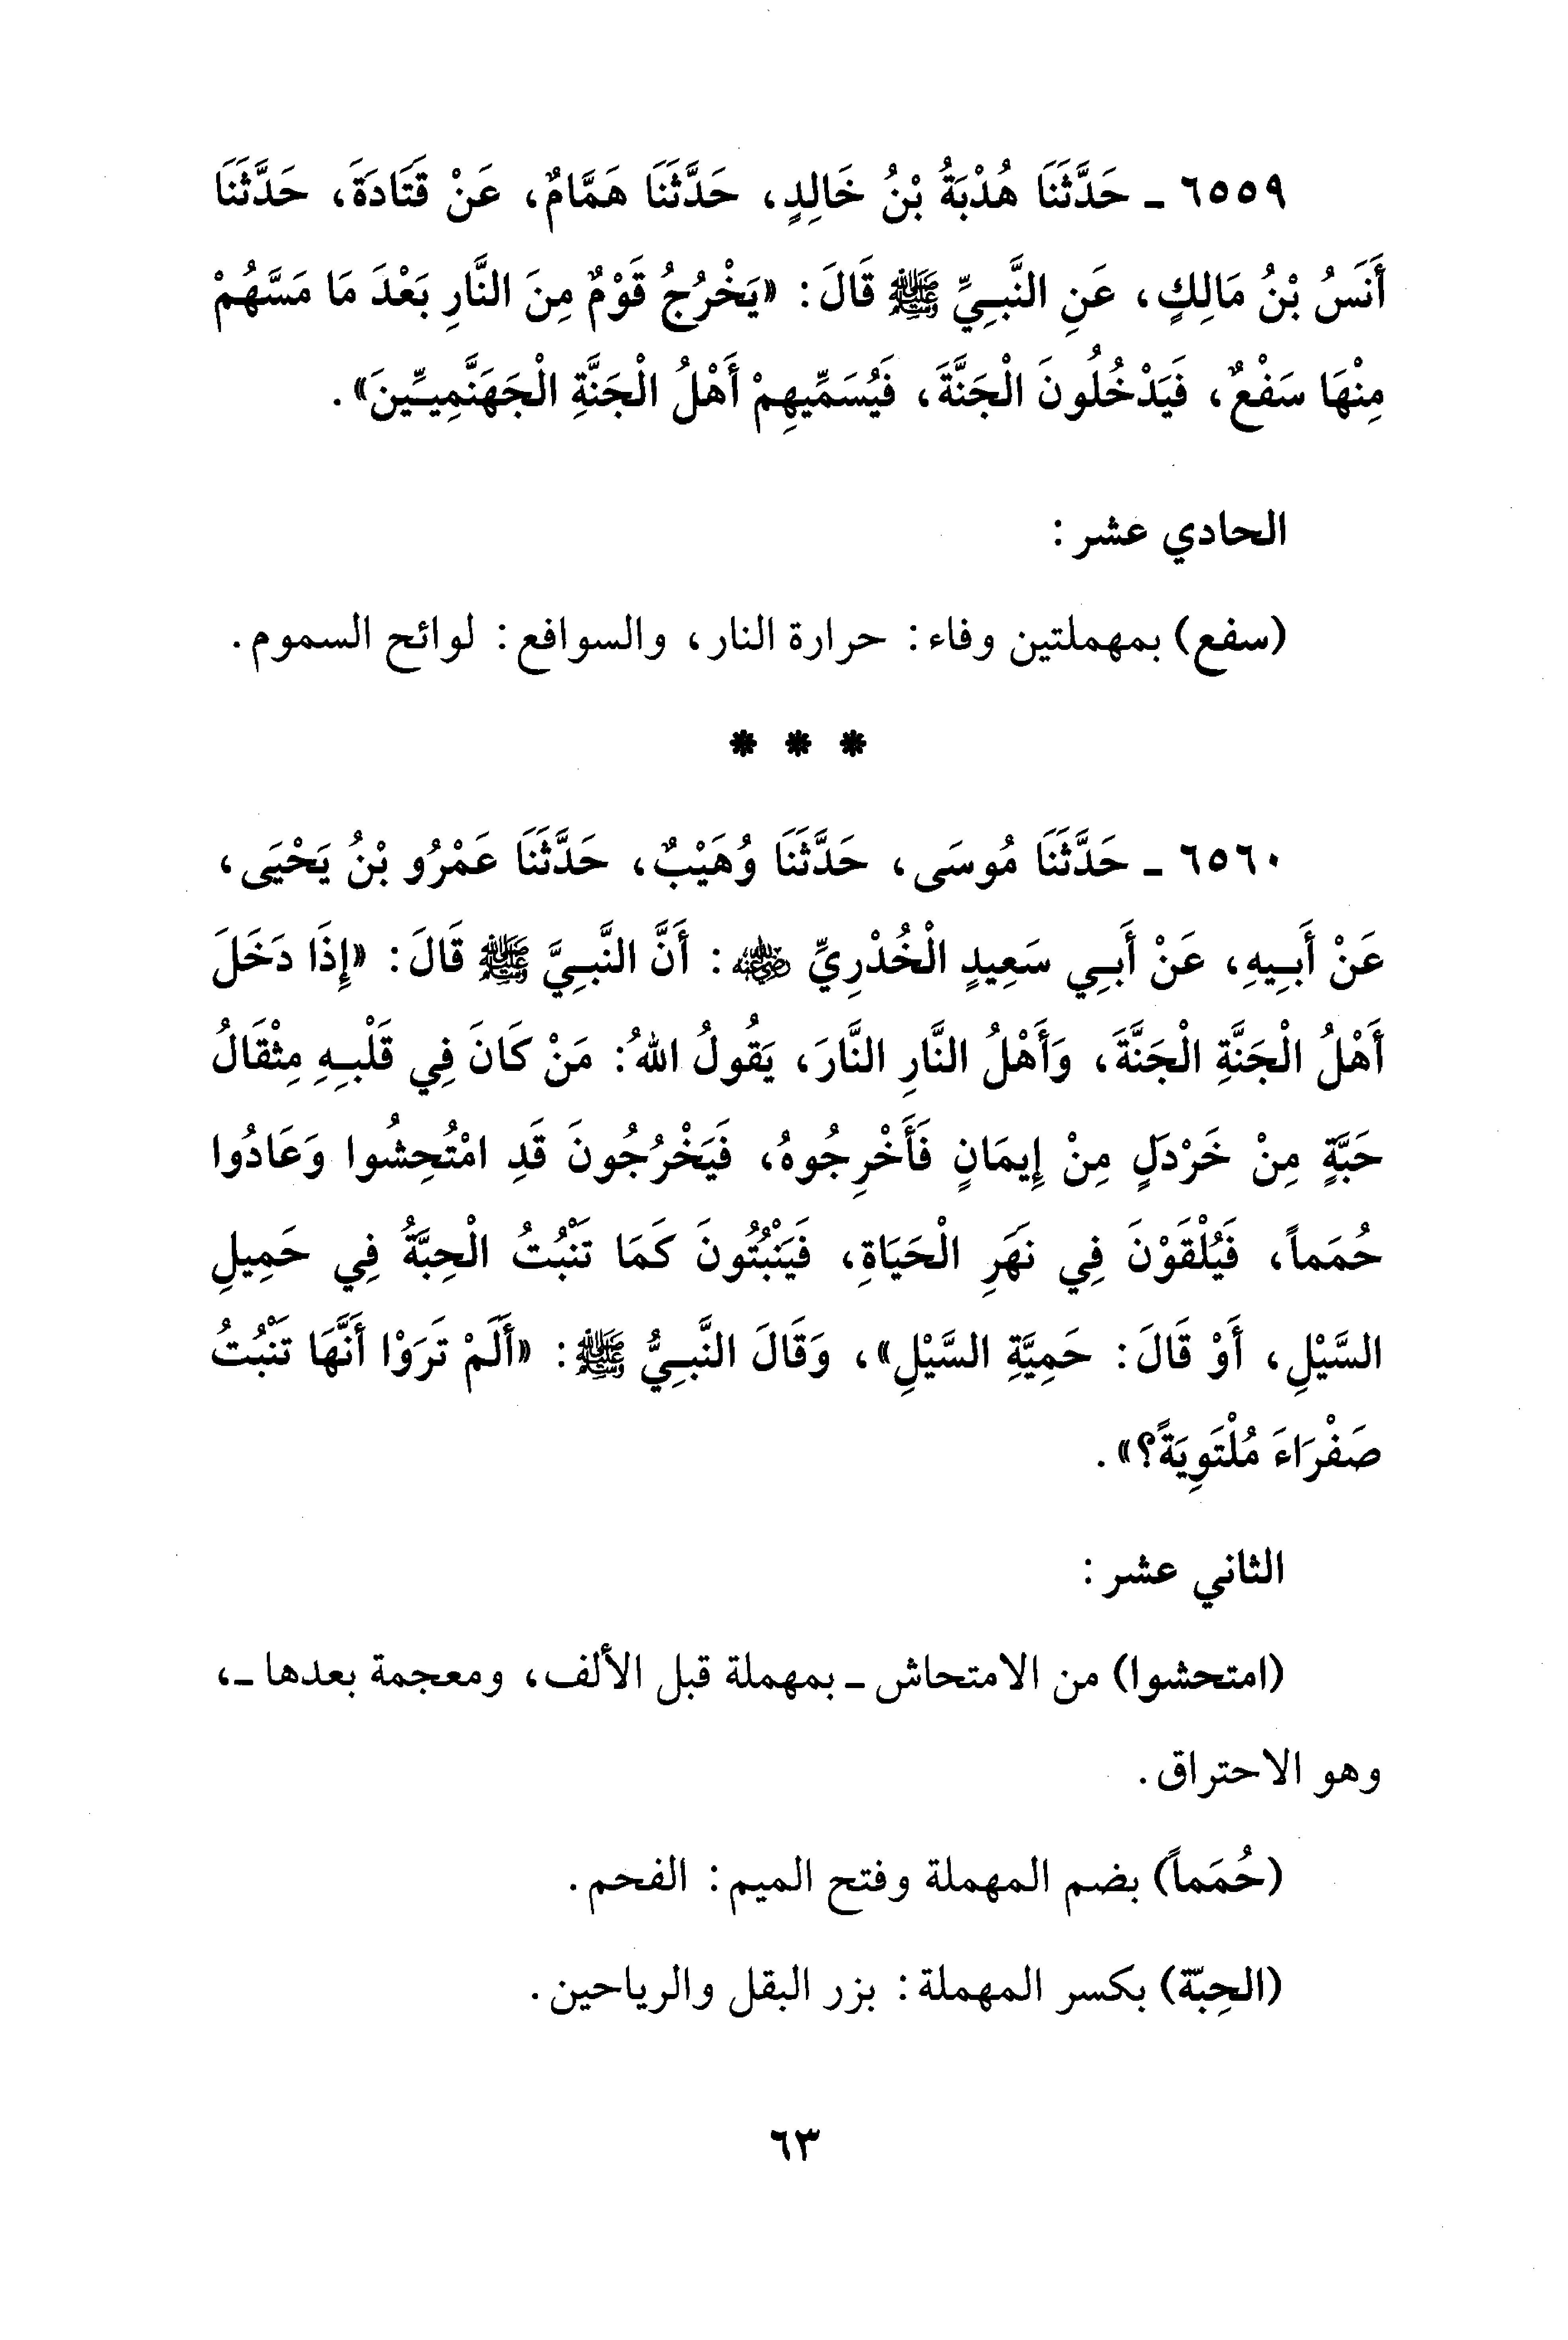 ٦٥٥٩ ـ حَدَّثَنَا هُدْبَةُ بْنُ خَالِدٍ، حَدَّثَنَا هَمَّامٌ، عَنْ قَتَادَةَ، حَدَّثَنَا
أَنَسُ بْنُ مَالِكٍ، عَنِ النَّبِيِّ ﷺ قَالَ: «يَخْرُجُ قَوْمٌ مِنَ النَّارِ بَعْدَ مَا مَسَّهُمْ
مِنْهَا سَفْعٌ، فَيَدْخُلُونَ الْجَنَّةَ، فَيُسَمِّيهِمْ أَهْلُ الْجَنَّةِ الْجَهَنَّمِيِّينَ».
الحادي عشر:
(سفع) بمهملتين وفاء: حرارة النار، والسوافع: لوائح السموم.
* * *
٦٥٦٠ ـ حَدَّثَنَا مُوسَى، حَدَّثَنَا وُهَيْبٌ، حَدَّثَنَا عَمْرُو بْنُ يَحْيَى،
عَنْ أَبِيهِ، عَنْ أَبِي سَعِيدٍ الْخُدْرِيِّ رضي الله عنه: أَنَّ النَّبِيَّ ﷺ قَالَ: «إِذَا دَخَلَ
أَهْلُ الْجَنَّةِ الْجَنَّةَ، وَأَهْلُ النَّارِ النَّارَ، يَقُولُ اللهُ: مَنْ كَانَ فِي قَلْبِهِ مِثْقَالُ
حَبَّةٍ مِنْ خَرْدَلٍ مِنْ إِيمَانٍ فَأَخْرِجُوهُ، فَيَخْرُجُونَ قَدِ امْتُحِشُوا وَعَادُوا
حُمَماً، فَيُلْقَوْنَ فِي نَهَرِ الْحَيَاةِ، فَيَنْبُتُونَ كَمَا تَنْبُتُ الْحِبَّةُ فِي حَمِيلِ
السَّيْلِ، أَوْ قَالَ: حَمِيَّةِ السَّيْلِ»، وَقَالَ النَّبِيُّ ﷺ: «أَلَمْ تَرَوْا أَنَّهَا تَنْبُتُ
صَفْرَاءَ مُلْتَوِيَةً؟».
الثاني عشر:
(امتحشوا) من الامتحاش ـ بمهملة قبل الألف، ومعجمة بعدها ـ،
وهو الاحتراق.
(حُمَماً) بضم المهملة وفتح الميم: الفحم.
(الحِبّة) بكسر المهملة: بزر البقل والرياحين.
٦٣